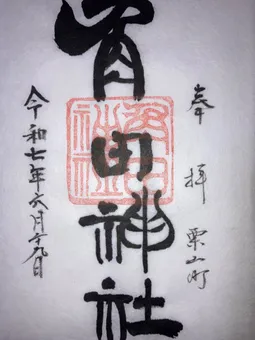 奉拝 栗山町
角田神社
角田
神社
令和七年六月十九日